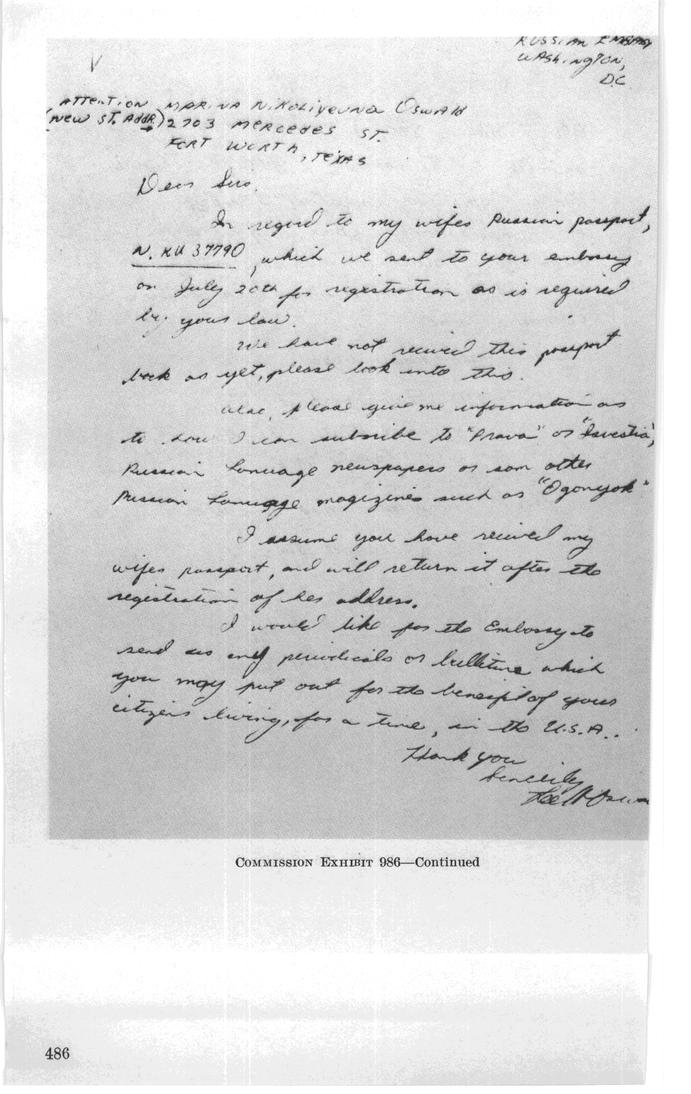 RUSSIAN EMBASY
WASHINGTON,
D.C.
ATTENTION MARINA NIKOLIYEUNA OSWALD
(NEW ST. Addr.) 2703 MERCEDES ST.
FORT WORTH, TEXAS
Dear Sirs.
In regard to my wifes Russian passport,
N. KU 37790, which we sent to your embassy
on July 20th for registration as is required
by your law.
We have not recived this passport
back as yet, please look into this.
Also, please give me information as
to how I can subsribe to "Prava" or "Isvestia",
Russian Language newspapers or som other
Russian Language magizines such as "Ogonyok"
I assume you have recived my
wifes passport, and will return it after the
registration of her address.
I would like for the Embassy to
send us any periodicals or bulletins which
you may put out for the benefit of your
citizens living, for a time, in the U.S.A..
Thank you
Sincerily
Lee H Oswa
COMMISSION EXHIBIT 986—Continued
486